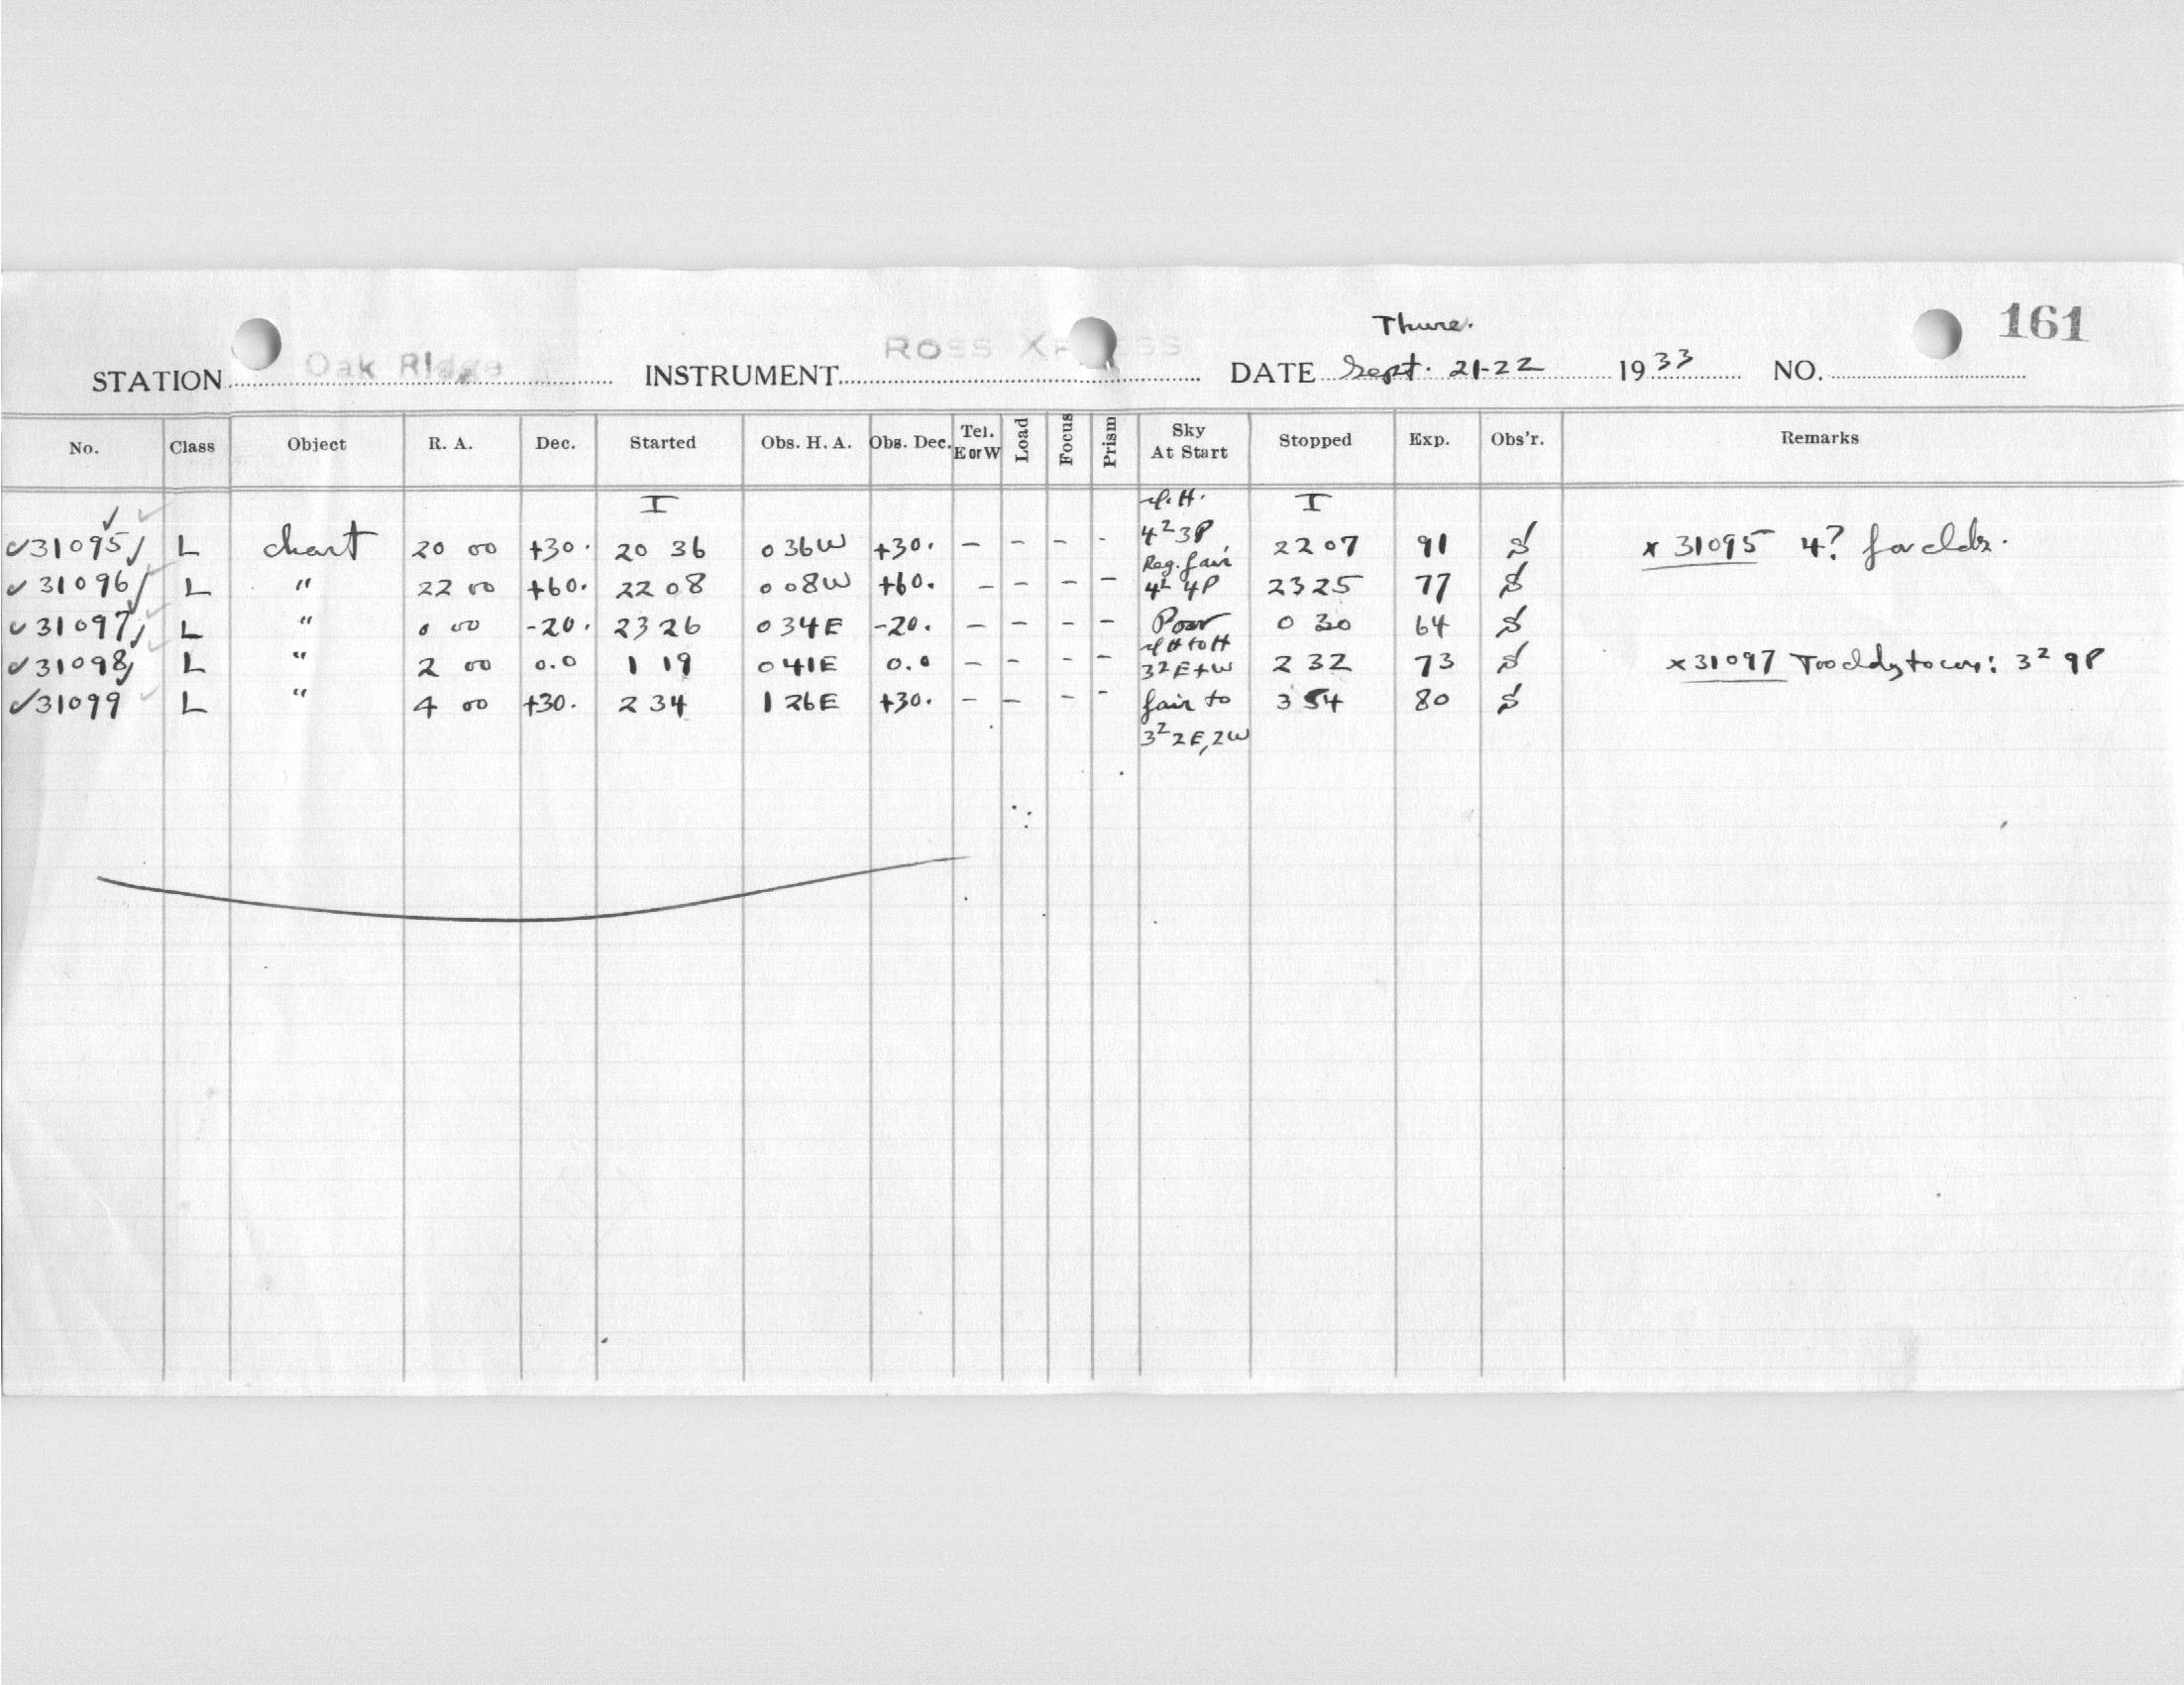 Thurs. 161
STATION Oak Ridge INSTRUMENT ROSS DATE Sept. 21-22 1933 NO.
No. Class Object R. A. Dec. Started Obs. H. A. Obs. Dec. Tel. E or W Load Focus Prism Sky At Start Stopped Exp. Obs'r. Remarks
I I
✓31095 L chart 20 00 +30. 20 36 0 36W +30. - - - - 4² 3P 22 07 91 S x 31095 4? for clds.
Reg. fair
✓31096 L " 22 00 +60. 22 08 0 08W +60. - - - - 4² 4P 23 25 77 S
✓31097 L " 0 00 -20. 23 26 0 34E -20. - - - - Poor 0 30 64 S
✓31098 L " 2 00 0.0 1 19 0 41E 0.0 - - - - 3² E+W 2 32 73 S x 31097 Too cldy to : 3² 9P
✓31099 L " 4 00 +30. 2 34 1 26E +30. - - - - fair to 3 54 80 S
3² 2E, 2W